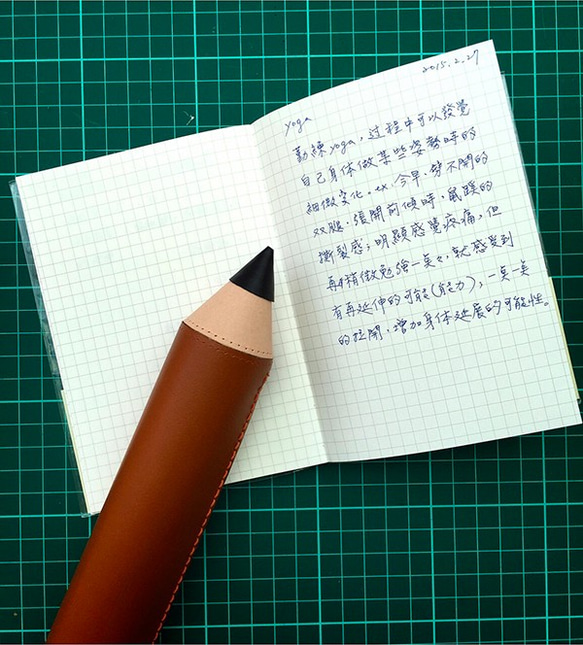 2015.2.27
yoga
勤練yoga，过程中可以發覺
自己身体做某些姿勢時的
細微变化。ex.今早，劈不開的
双腿，張開前傾時，鼠蹊的
撕裂感，明顯感覺疼痛，但
再稍微勉強一点点，就感受到
有再延伸的可能(能力)，一点一点
的拉開，增加身体延展的可能性。